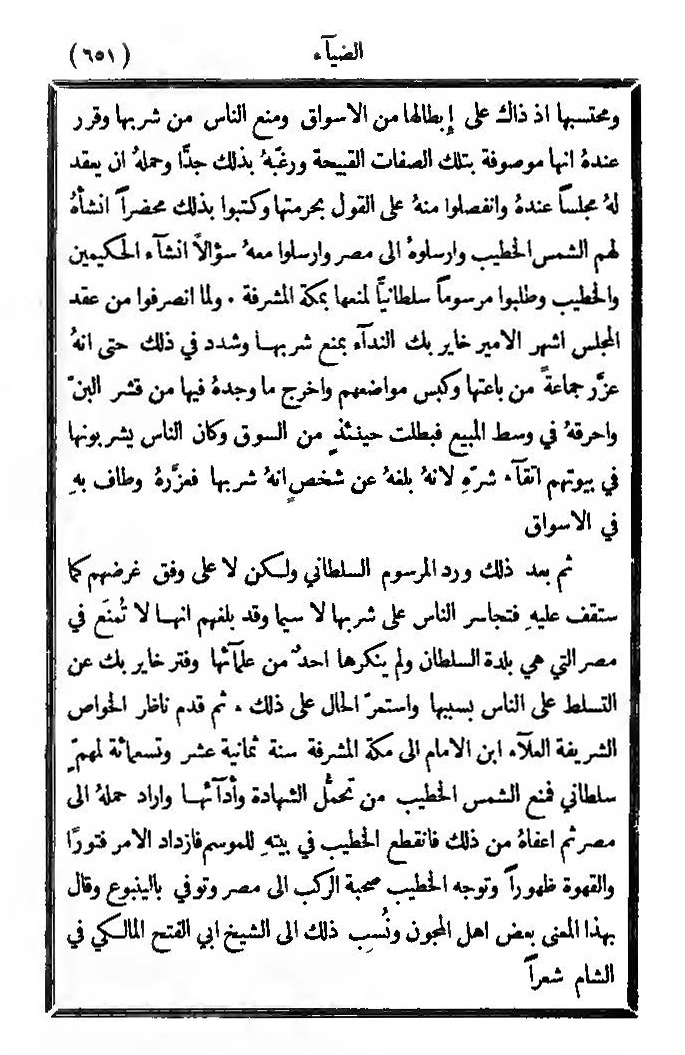 الضيآء
(٦٥١)
ومحتسبها اذ ذاك على إبطالها من الاسواق ومنع الناس من شربها وقرر
عندهُ انها موصوفة بتلك الصفات القبيحة ورغّبهُ بذلك جدًّا وحملهُ ان يعقد
لهُ مجلساً عندهُ وانفصلوا منهُ على القول بحرمتها وكتبوا بذلك محضراً انشأهُ
لهم الشمس الخطيب وارسلوهُ الى مصر وارسلوا معهُ سؤالاً انشآء الحكيمين
والخطيب وطلبوا مرسوماً سلطانيًّا لمنعها بمكة المشرفة ٠ ولما انصرفوا من عقد
المجلس اشهر الامير خاير بك الندآء بمنع شربهـا وشدد في ذلك حتى انهُ
عزَّر جماعةً من باعتها وكبس مواضعهم واخرج ما وجدهُ فيها من قشر البنّ
واحرقهُ في وسط المبيع فبطلت حينئذٍ من السوق وكان الناس يشربونها
في بيوتهم اتقآء شرّهِ لانهُ بلغهُ عن شخصٍ انهُ شربها فعزَّرهُ وطاف بهِ
في الاسواق
ثم بعد ذلك ورد المرسوم السلطاني ولكن لا على وفق غرضهم كما
ستقف عليهِ فتجاسر الناس على شربها لا سيما وقد بلغهم انهـا لا تُمنَع في
مصر التي هي بلدة السلطان ولم ينكرها احدٌ من علمآئها وفتر خاير بك عن
التسلط على الناس بسببها واستمرّ الحال على ذلك ٠ ثم قدم ناظر الخواص
الشريفة العلآء ابن الامام الى مكة المشرفة سنة ثمانية عشر وتسعمائة لمهمٍّ
سلطاني فمنع الشمس الخطيب من تحمُّل الشهادة وأدآئهـا واراد حملهُ الى
مصر ثم اعفاهُ من ذلك فانقطع الخطيب في بيتهِ للموسم فازداد الامر فتورًا
والقهوة ظهوراً وتوجه الخطيب صحبة الركب الى مصر وتوفي بالينبوع وقال
بهذا المعنى بعض اهل المجون ونُسِب ذلك الى الشيخ ابي الفتح المالكي في
الشام شعراً